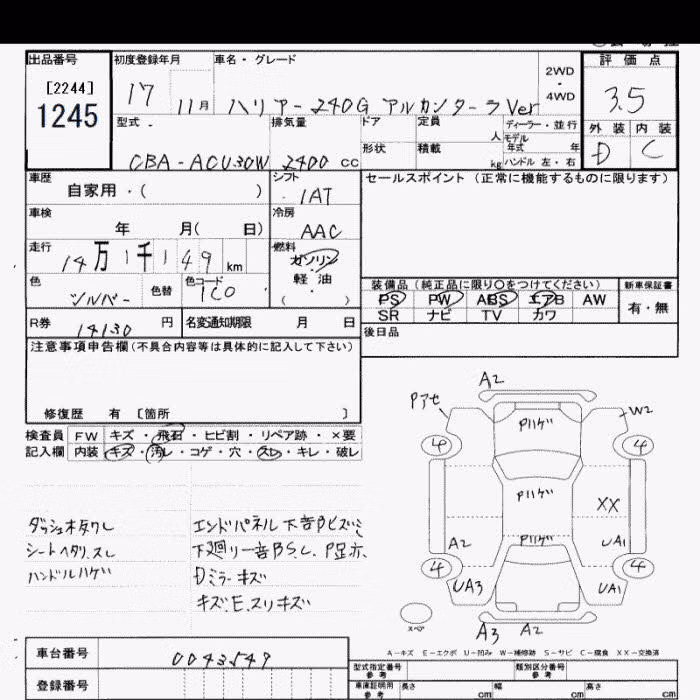 出品番号
[2244]
1245
初度登録年月
17 11月
車名・グレード
ハリアー 240G アルカンターラVer
2WD
・
4WD
評価点
3.5
外装 内装
D C
型式
CBA-ACU30W
排気量
2400 CC
ドア
形状
定員
人
積載
kg
ディーラー・並行
モデル
年式 年
ハンドル 左・右
車歴
自家用・( )
シフト
IAT
セールスポイント (正常に機能するものに限ります)
車検
年 月( 日)
冷房
AAC
走行
14万1千149 km
燃料
ガソリン
軽油
( ・ )
色
シルバー
色替
色コード
1C0
装備品 (純正品に限り○をつけてください)
PS PW ABS エアB AW
SR ナビ TV カワ
新車保証書
有・無
R券
14130 円
名変通知期限 月 日
後日品
注意事項申告欄(不具合内容等は具体的に記入して下さい)
修復歴 有 〔箇所 〕
検査員
記入欄
FW キズ・飛石・ヒビ割・リペア跡・×要
内装 キズ・汚レ・コゲ・穴・スレ・キレ・破レ
ダッシュ木タクレ
シートヘタリ.スレ
ハンドルハゲ
エンドパネル下音Bヒズミ
下廻リ一音B S.C. P
Dミラーキズ
キズ.E.スリキズ
A2
Pアセ
W2
Pハゲ
4
4
Pハゲ
XX
A2
Pハゲ
UA1
4
4
UA3
UA1
スペア
A3
A2
A-キズ E-エクボ U-凹み W-補修跡 S-サビ C-腐食 XX-交換済
車台番号
0043547
型式指定番号
参考
類別区分番号
参考
登録番号
車庫証明用
参考
長さ
cm
幅
cm
高さ
cm